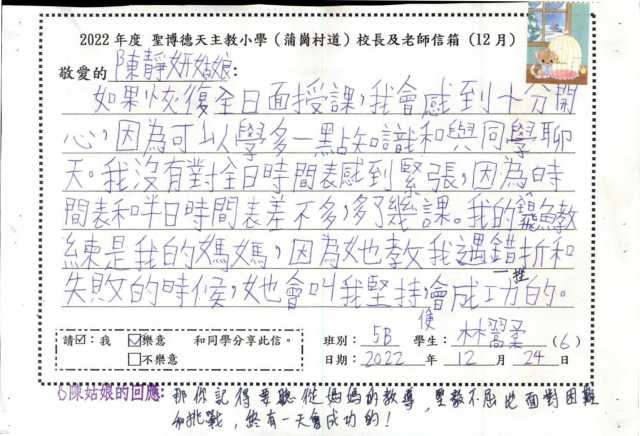 2022 年度 聖博德天主教小學（蒲崗村道）校長及老師信箱（12月）
敬愛的陳靜妍姑娘：
如果恢復全日面授課，我會感到十分開
心，因為可以學多一點知識和與同學聊
天。我沒有對全日時間表感到緊張，因為時
間表和半日時間表差不多，多了幾課。我的 教
練是我的媽媽，因為她教我遇錯折和
挫
失敗的時候，她會叫我堅持，會成功的。
便
請☑：我 ☑樂意 和同學分享此信。
□不樂意
班別： 5B 學生： 林 柔 (6)
日期： 2022 年 12 月 24 日
陳姑娘的回應：那你記得要聽從媽媽的教導，堅毅不屈地面對困難
和挑戰，終有一天會成功的！